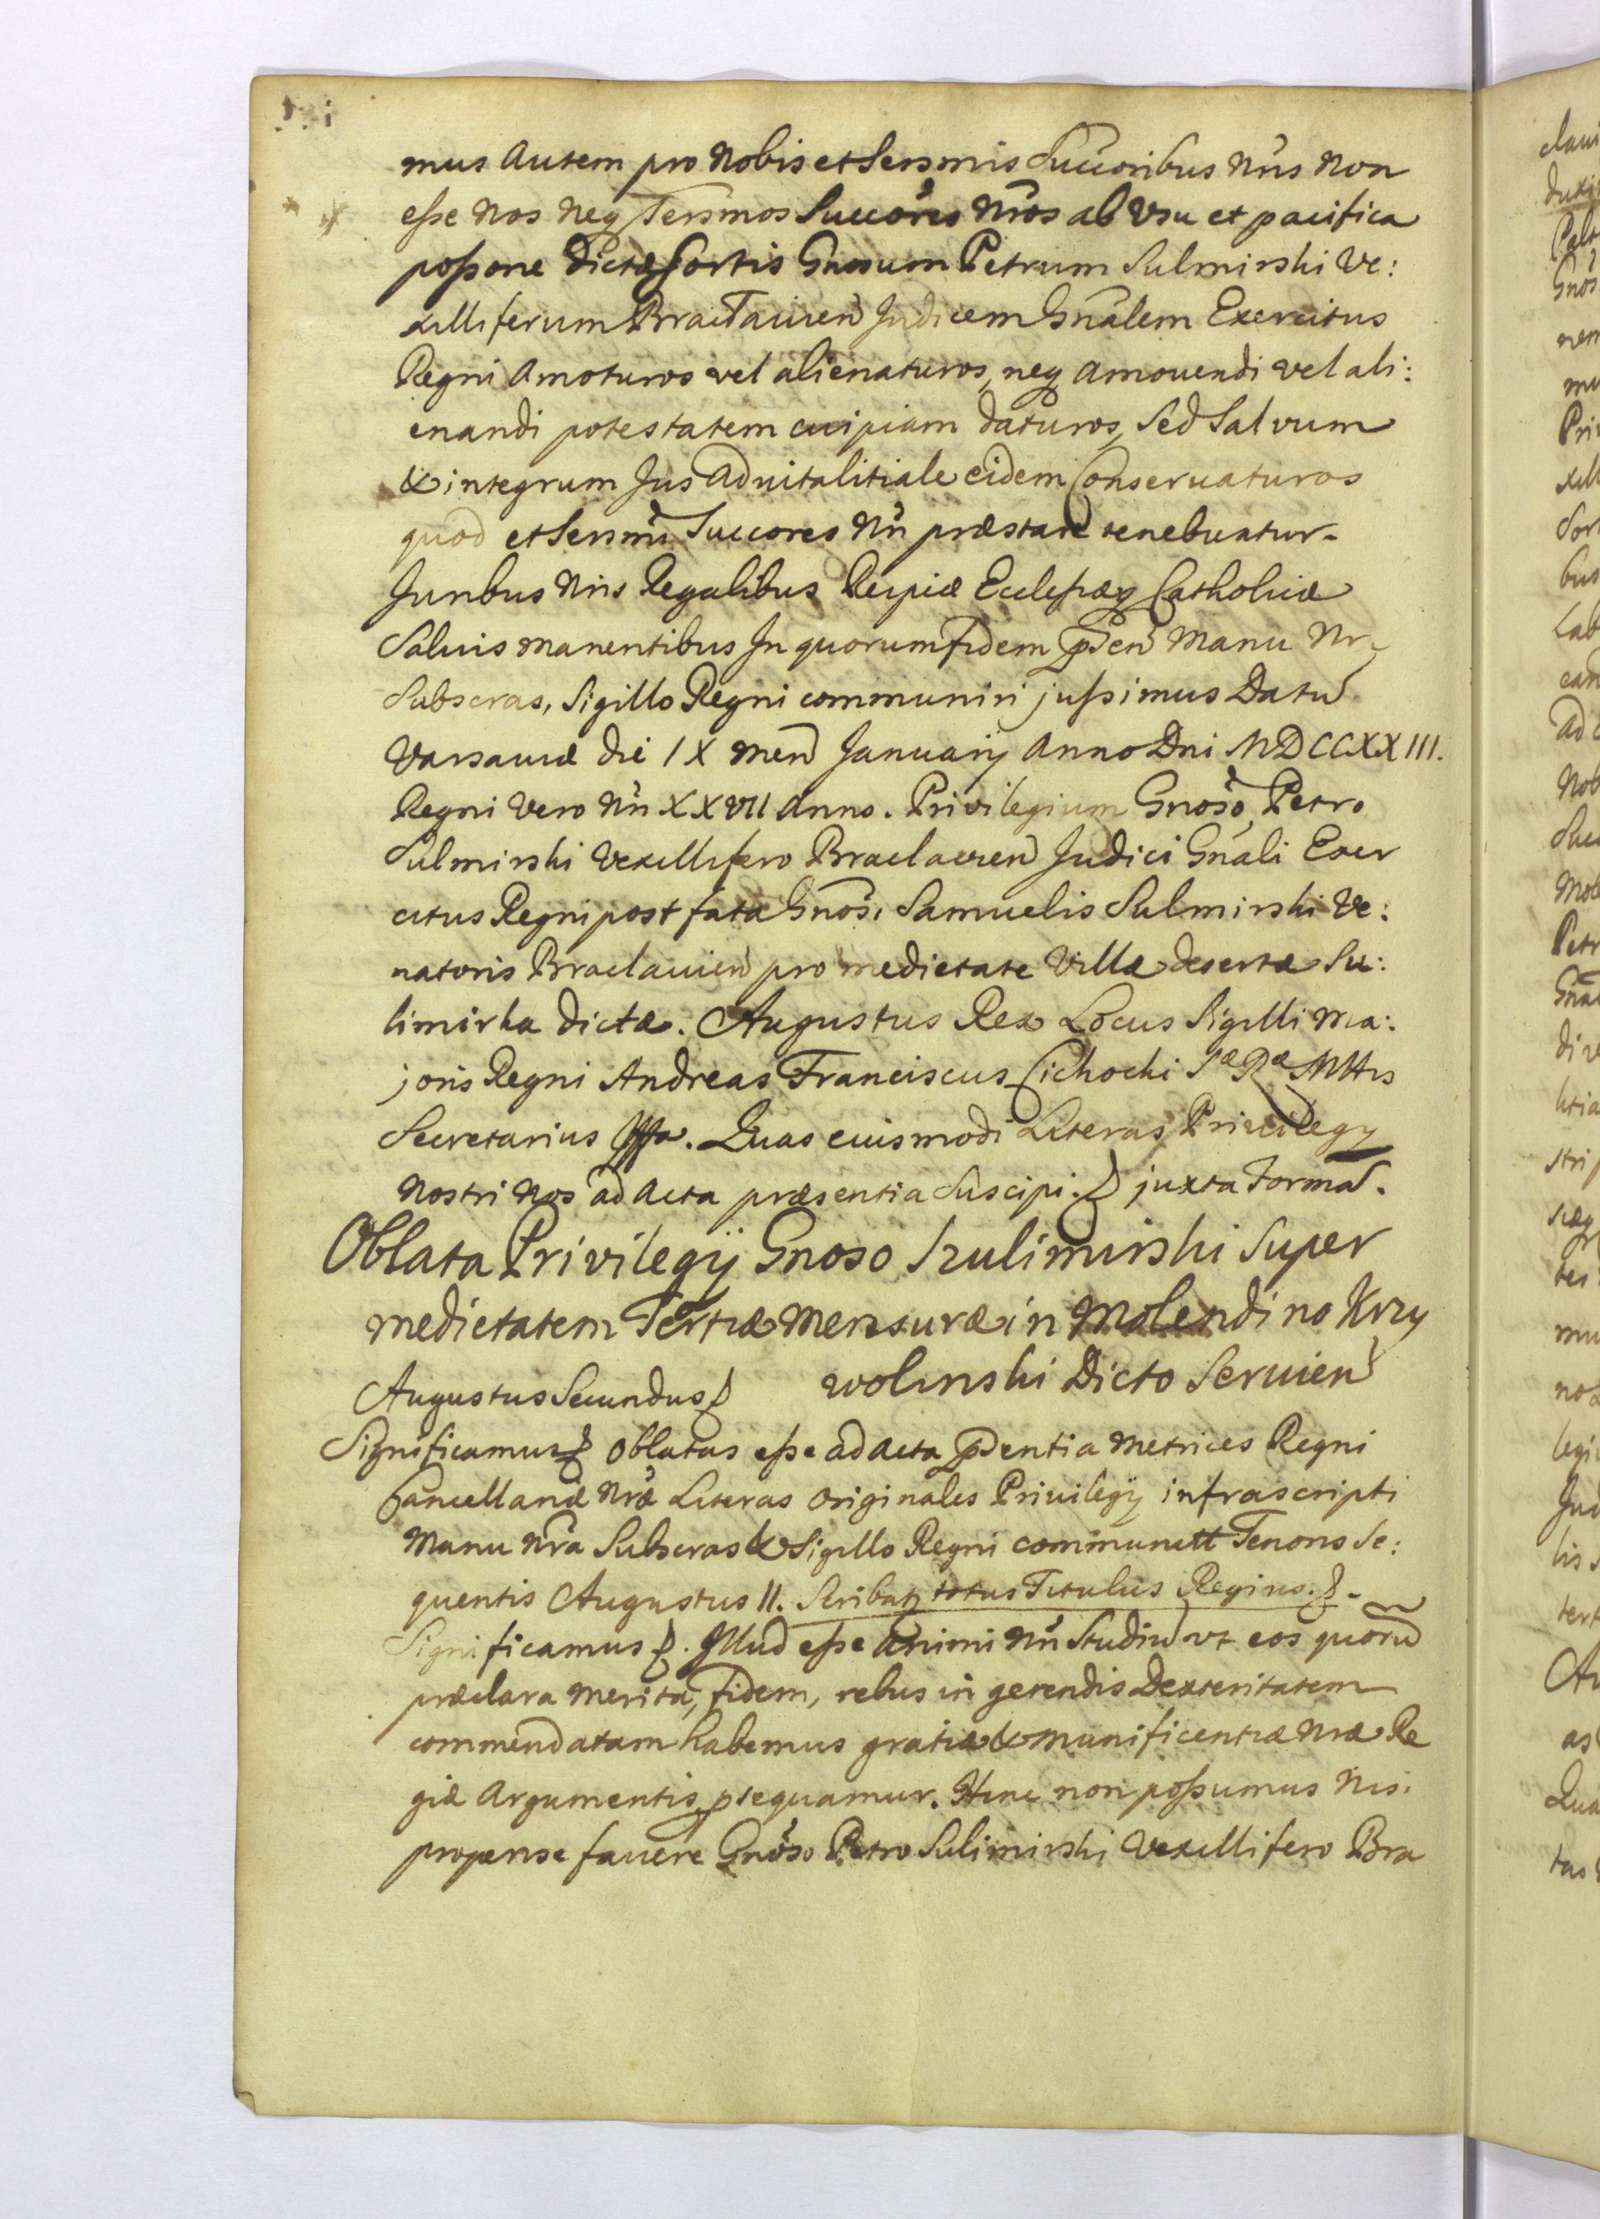 mus autem pro Nobis et Sersmis Succoribus Nris Non
eße Nos neq Sersmos Succores Nros ab Vsu et pacifica
poßone Dictæ Sortis Gnosum Petrum Sulmirski Ve:
xilliferum Braclavien Judicem Gnalem Exercitus
Regni Amoturos vel alienaturos, neq amouendi vel ali:
enandi potestatem cuipiam daturos, Sed Salvum
& integrum Jus aduitalitiale eidem Conseruaturos
quod et Sersmi Succores Nri præstare tenebuntur.
Juribus Nris Regalibus Reipiæ Eccleßiæq Catholicæ
Saluis manentibus In quorum fidem pñsen Manu Nr
Subscras, Sigillo Regni communiri jußimus Datu
Varsauiæ die IX men January Anno Dni MDCCXXIII.
Regni Vero Nri XXVII Anno. Privilegium Gnoso Petro
Sulmirski Vexillifero Braclavien Judici Gnali Exer
citus Regni post fata Gnosi Samuelis Sulmirski Ve:
natoris Braclauien pro medietate Villæ desertæ Su:
limirka dictæ. Augustus Rex Locus Sigilli Ma:
joris Regni Andreas Franciscus Cichocki Sæ Ræ Mttis
Secretarius Quas euismodi Literas Priuilegy
nostri Nos ad Acta præsentia Suscipi. juxta Forma.
Oblata Privilegij Gnoso Szulimirski Super
medietatem Tertiæ Mensuræ in Molendino Krzy
wolinski Dicto Seruien
Augustus Secundus
Significamus Oblatas eße ad Acta pñsentia Metrices Regni
Cancellariæ Nræ Literas Originales Priuilegij infrascripti
Manu Nra Subscras & Sigillo Regni communitt Tenoris Se:
quentis Augustus II. Scribat totus Titulus Regius.
Significamus. Illud eße animi Nri Studiu vt eos quoru
præclara merita, fidem, rebus in gerendis Dexteritatem
commendatam habemus gratiæ & munificentiæ Nræ Re
giæ Argumentis psequamur. Hinc non poßumus Nis.
propense fauere Gnoso Petro Sulimirski Vexillifero Bra